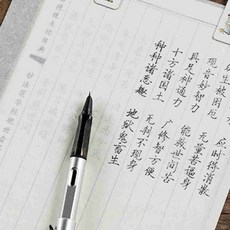 应时得消散
生被困厄 无量苦逼身
观音妙智力 能救世间苦
具足神通力 广修智方便
十方诸国土 无刹不现身
种种诸恶趣 地狱鬼畜生